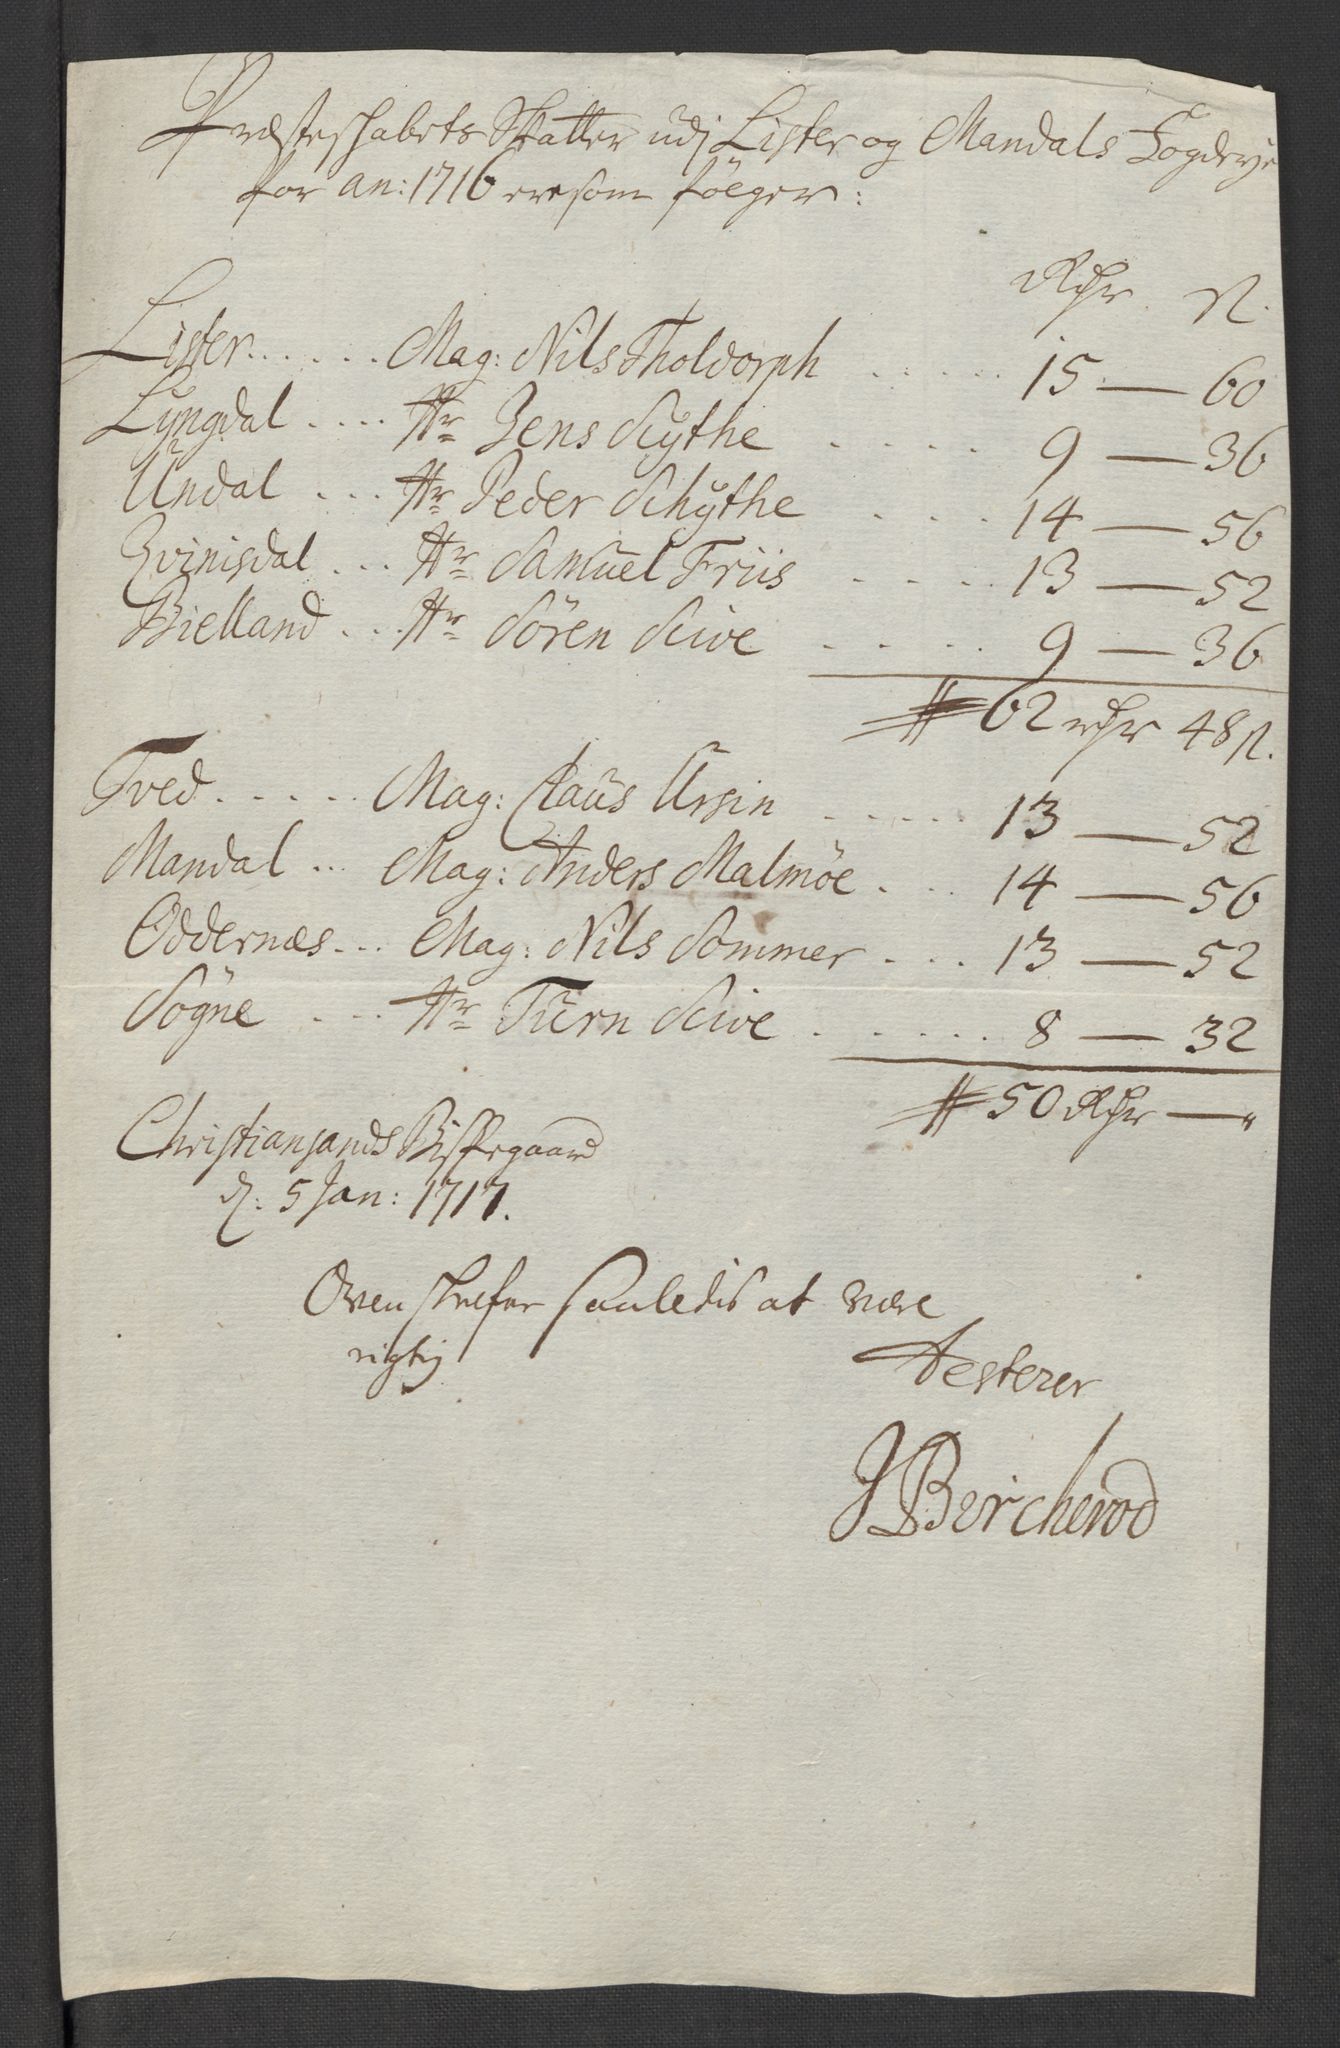 Præsteschabets Skatter udj Lister og Mandals Fogderje
for an: 1716 ere som fölger:
Rdr ß.
Lister...... Mag: Nils Tholdorph ..... 15 — 60
Lÿngdal .... Hr Jens Scythe ..... 9 — 36
Undal .... Hr Peder Schÿthe .... 14 — 56
Qvinisdal ... Hr Samuel Friis .... 13 — 52
Bielland ... Hr Sören Scive ..... 9 — 36
62 rdr 48 ß.
Tved..... Mag: Claus Ursin ..... 13 — 52
Mandal ... Mag: Anders Malmöe ... 14 — 56
Oddernæs... Mag: Nils Sommer ... 13 — 52
Sögne ... Hr Türn Scive ...... 8 — 32
50 Rdr —
Christiansands Bispegaard
d: 5 Jan: 1717.
Oven skrefne saaledis at være
rigtig
Testerer
J Bircherod